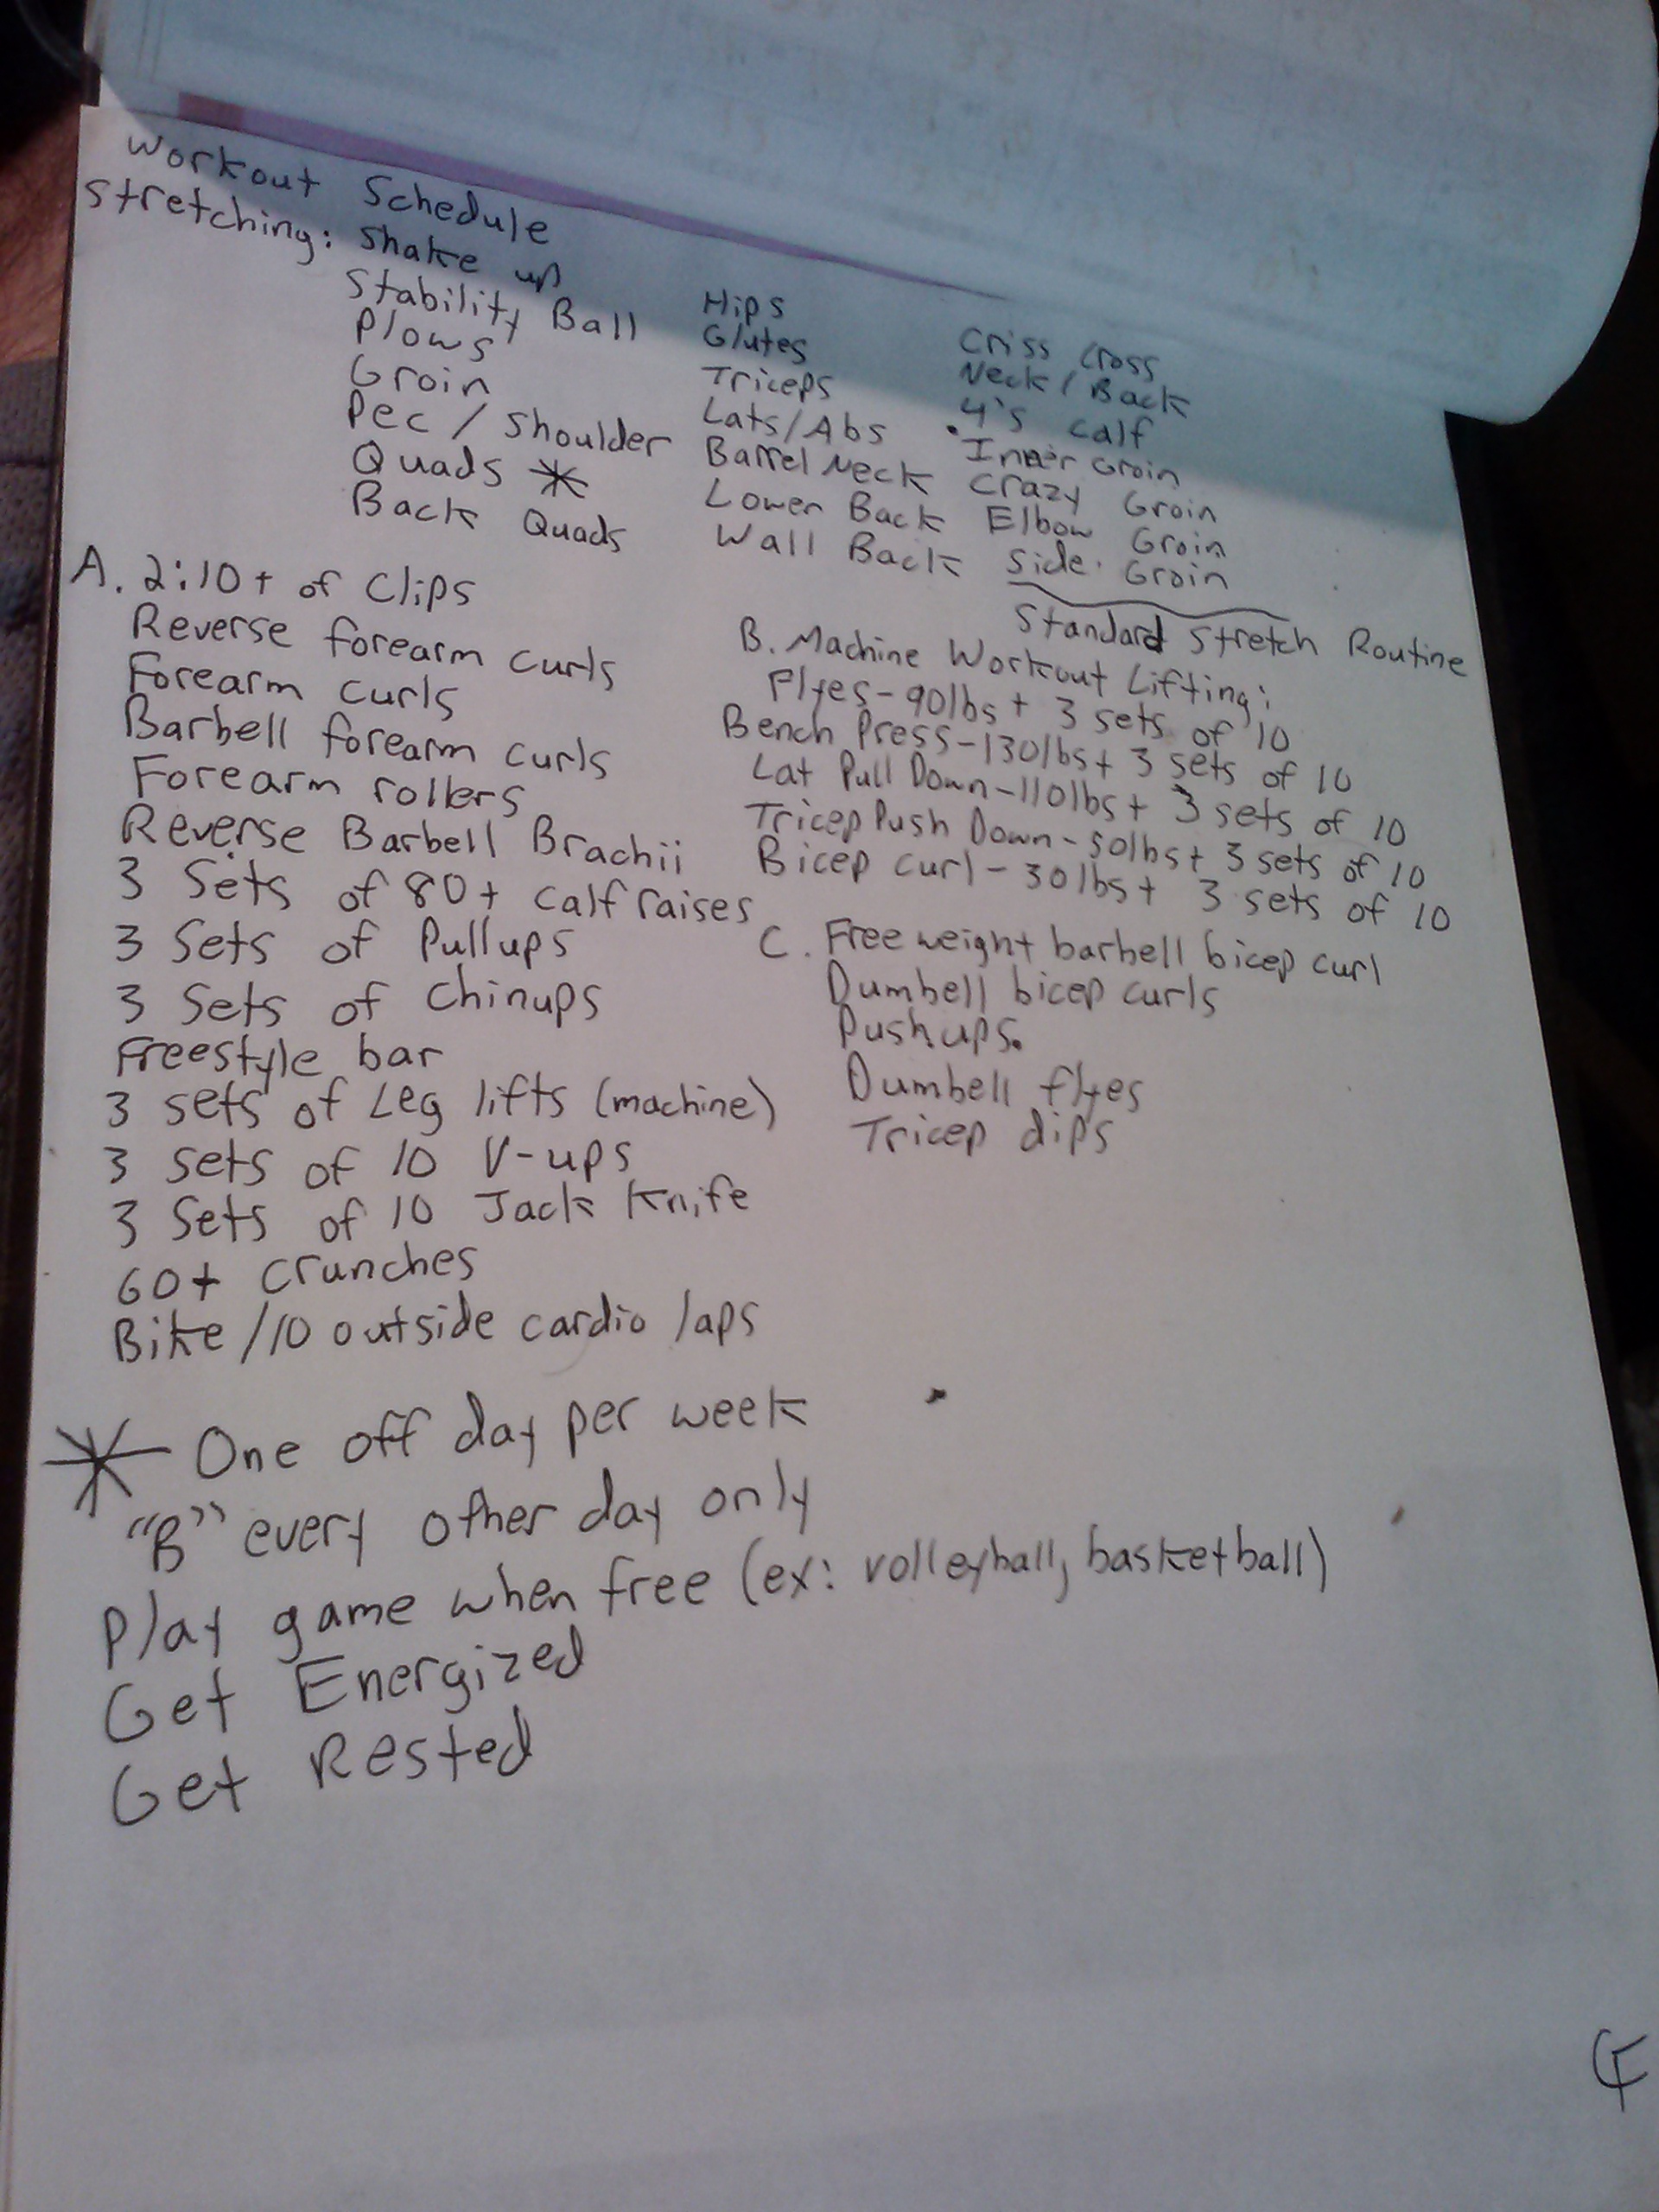 Workout Schedule
Stretching: Shake up
Stability Ball
Plows
Groin
Pec / Shoulder
Quads *
Back Quads
Hips
Glutes
Triceps
Lats/Abs
Barrel Neck
Lower Back
Wall Back
Criss Cross
Neck / Back
4's calf
Inner Groin
Crazy Groin
Elbow Groin
Side Groin
Standard Stretch Routine
A. 2:10+ of Clips
Reverse forearm curls
Forearm curls
Barbell forearm curls
Forearm rollers
Reverse Barbell Brachii
3 Sets of 80+ calf raises
3 Sets of Pullups
3 Sets of Chinups
Freestyle bar
3 sets of Leg lifts (machine)
3 sets of 10 V-ups
3 Sets of 10 Jack Knife
60+ Crunches
Bike/10 outside cardio laps
B. Machine Workout Lifting:
Flyes-90lbs+ 3 sets of 10
Bench Press-130lbs+ 3 sets of 10
Lat Pull Down-110lbs+ 3 sets of 10
Tricep Push Down-50lbs+ 3 sets of 10
Bicep curl-30lbs+ 3 sets of 10
C. Free weight barbell bicep curl
Dumbell bicep curls
Pushups.
Dumbell flyes
Tricep dips
* One off day per week
"B" every other day only
Play game when free (ex: volleyball, basketball)
Get Energized
Get Rested